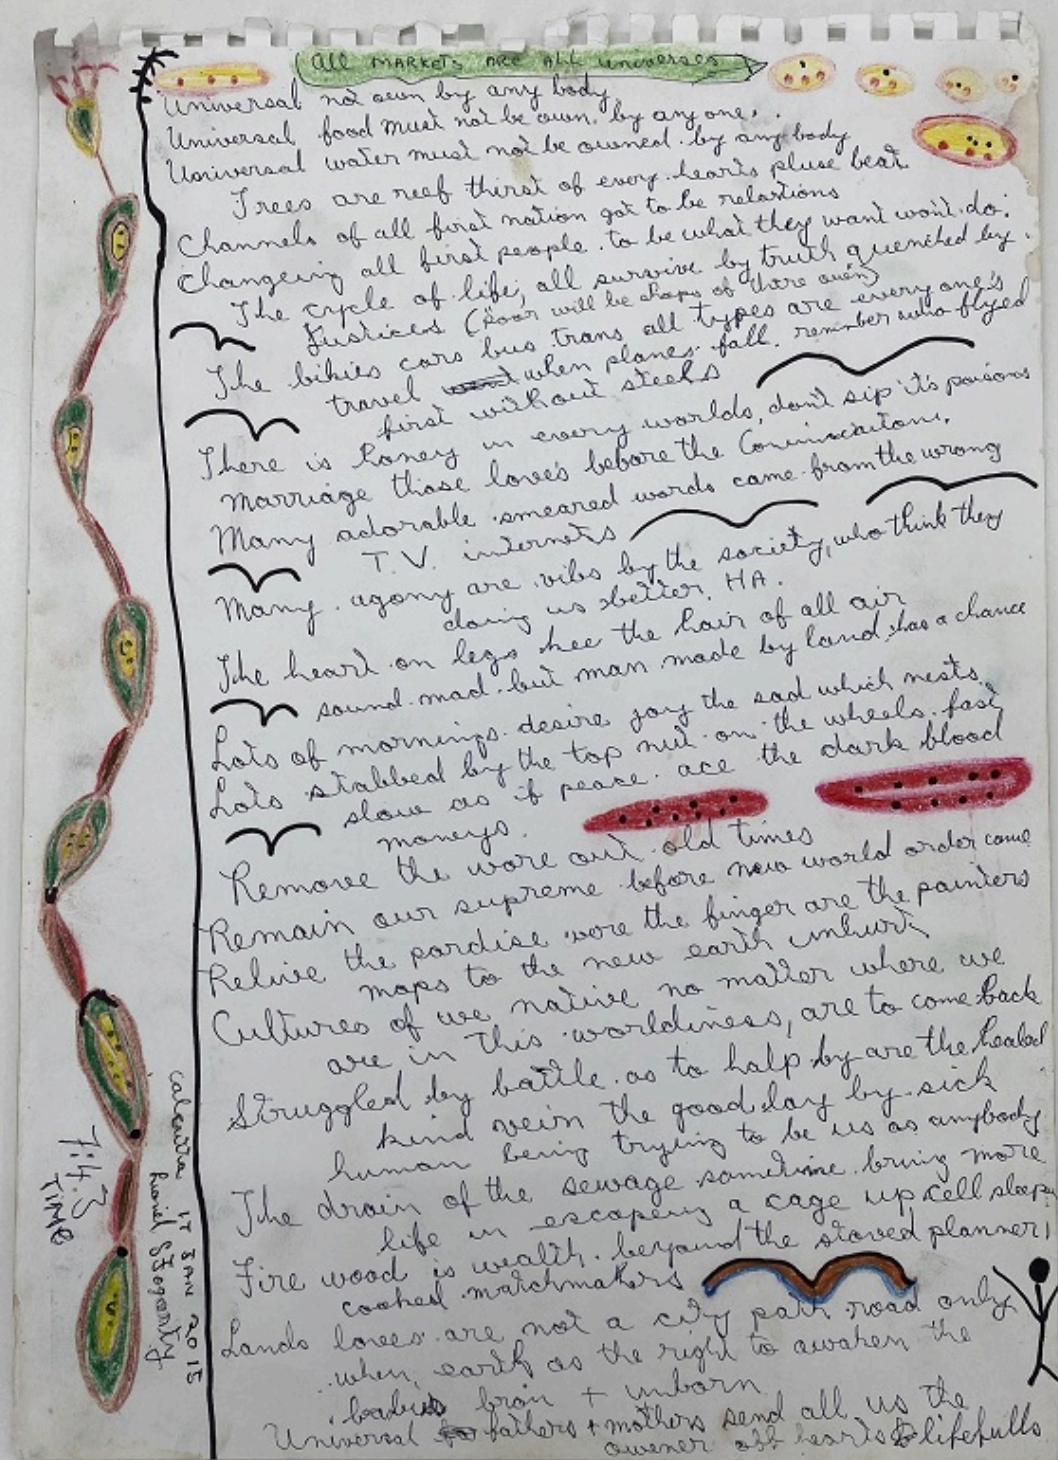 All MARKETS ARE ALL Universes
Universal not own by any body
Universal food must not be own. by any one,.
Universal water must not be owned. by any body
Trees are reef thirst of every. hearts pluse beat
Channels of all first nation got to be relastions
Changeing all first people. to be what they want won't do.
The cycle of life, all survive by truth quenched by.
Justices (Poor will be shops of there own)
The bikies cars bus trans all types are every one's
travel when planes. fall. remember who flyed
first without steels
There is honey in every worlds, don't sip it's poisons
Marriage those loves before the
Many adorable smeared words came from the wrong
T.V. internets
Many agony are vibs by the society, who think they
doing us better. HA.
The heart on legs hee the hair of all air
sound mad but man made by land, has a chance
Lots of mornings desire joy the sad which nests.
Lots stabbed by the top nut on the wheels. fast
slow as if peace. ace the dark blood
moneys.
Remove the wore out old times
Remain our supreme before now world order come
Relive the pardise wore the finger are the painters
maps to the new earth unhurt
Cultures of we native no matter where we
are in this worldiness, are to come back
Struggled by battle as to halp by are the healed
kind vein the good day by sick
human being trying to be us as anybody
The drain of the sewage sometime bring more
life in escapeing a cage up cell sleepy
Fire wood is wealth. beyound the stoved planner,
cooked matchmakers
Lands loves are not a city path road only
when, earth as the right to awaken the
bron + unborn
Universal fathers + mothers send all us the
owener off hearts lifefulls
7:43
TIME
calcutta 17 JAN 2015
Lionel Fogarty